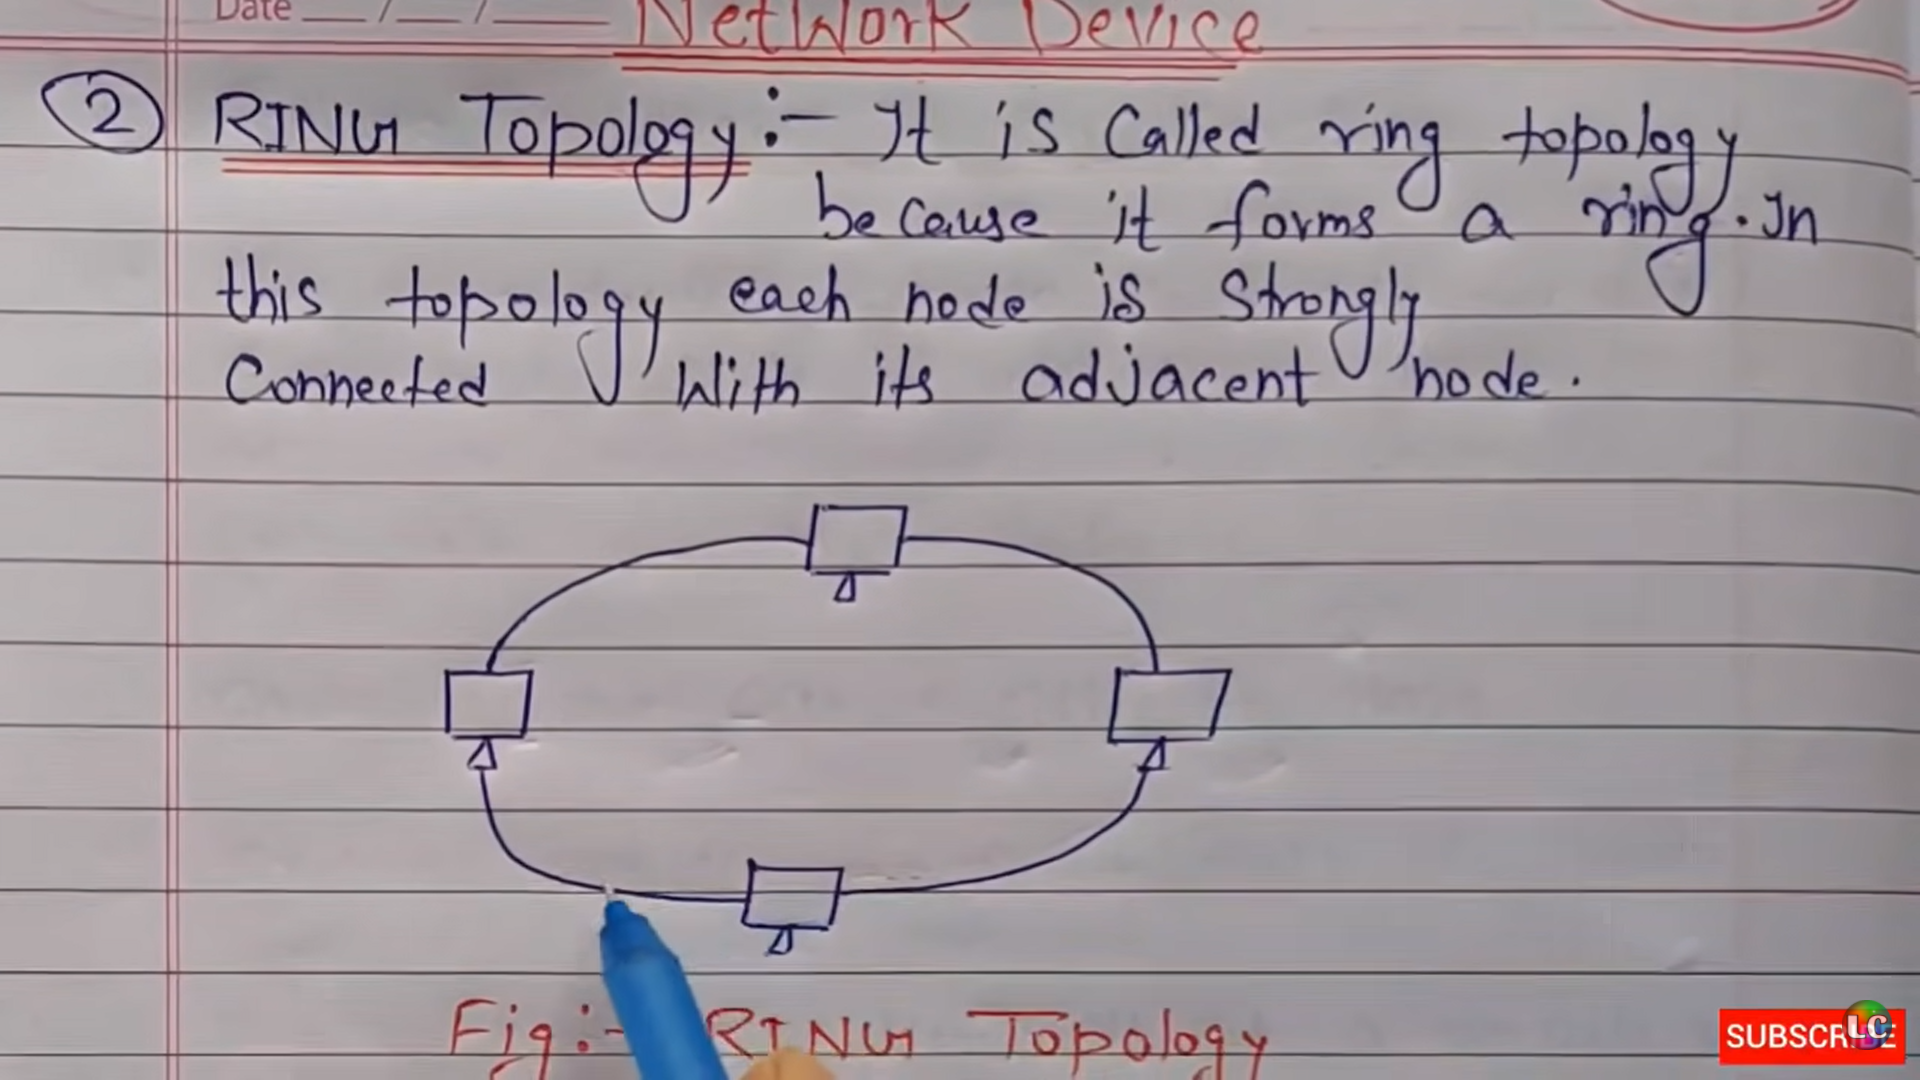 Date __/__/____
Network Device
2 RING Topology:- It is Called ring topology
because it forms a ring. In
this topology each node is Strongly
Connected With its adjacent node.
Fig:- RING Topology
SUBSCRIBE
LC